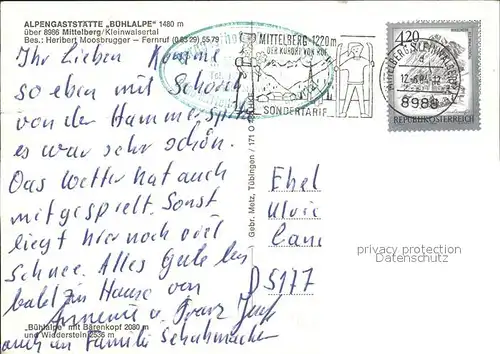 ALPENGASTSTÄTTE „BÜHLALPE" 1480 m
über 8986 Mittelberg/Kleinwalsertal
Bes.: Heribert Moosbrugger – Fernruf (0 83 29) 55 79
MITTELBERG · 1220 m
DER KURORT VON RUF
SONDERTARIF
8986
4.20
REPUBLIK ÖSTERREICH
Ihr Lieben Komme
so eben mit Schorch
von der Hammerspitze
es war sehr schön.
Das Wetter hat auch
mitgespielt. Sonst
liegt hier noch viel
Schnee. Alles Gute bis
bald zu Hause von
Annemie u. Franz
auch an Familie Schuhmacher
Gebr. Metz, Tübingen / 171 O
Ehel
Ulric
Cann
D 5177
privacy protection
„Bühlalpe" mit Bärenkopf 2080 m
und Widderstein 2536 m